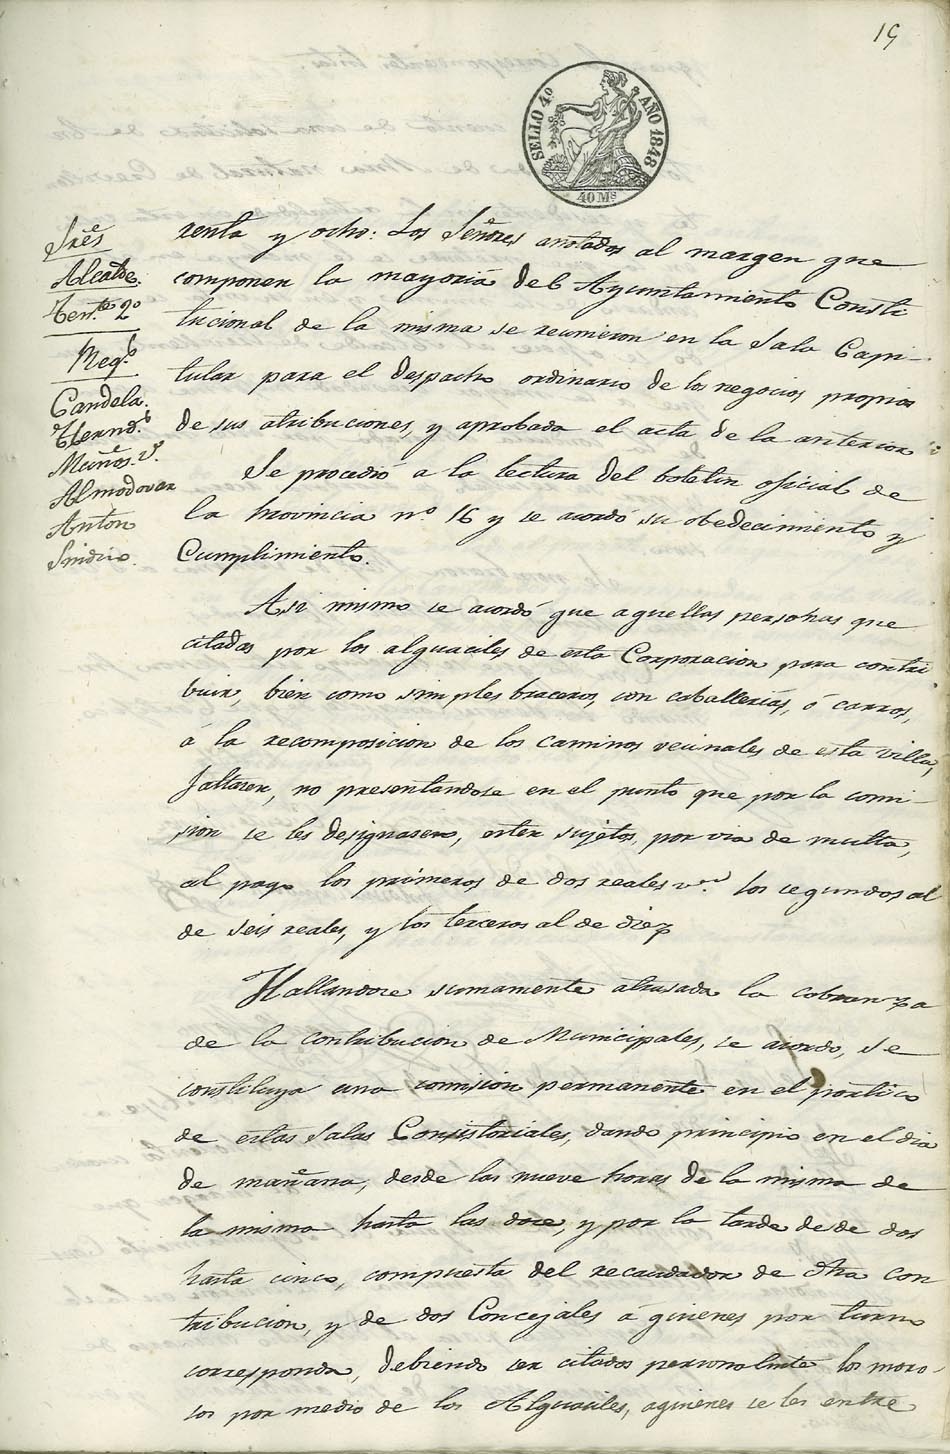 19
SELLO 4º AÑO 1848
40 Ms
Sres
Alcalde.
Tente. 2º
Regs.
Candela.
Hernds.
Muños. V.
Almodovar
Anton
Sindico.
renta y ocho: Los Señores anotados al margen que
componen la mayoria del Ayuntamiento Consti
tucional de la misma se reunieron en la Sala Capi-
tular para el despacho ordinario de los negocios propios
de sus atribuciones, y aprobada el acta de la anterior
Se procedió a la lectura del boletin oficial de
la provincia nº 16 y se acordó su obedecimiento y
Cumplimiento.
Asi mismo se acordó que aquellas personas que
citadas por los alguaciles de esta Corporacion para contri
buir, bien como simples braceros, con caballerias, ó carros,
á la recomposicion de los caminos vecinales de esta villa,
faltasen, no presentandose en el punto que por la comi-
sion se les designasen, esten sujetos, por via de multa,
al pago los primeros de dos reales vn. los segundos al
de seis reales, y los terceros al de diez
Hallandose sumamente atrasada la cobranza
de la contribucion de Municipales, se acordo, se
constituya una comision permanente en el portico
de estas Salas Consistoriales, dando principio en el dia
de mañana, desde las nueve horas de la misma de
la misma hasta las doce, y por la tarde desde dos
hasta cinco, compuesta del recaudador de dha con
tribucion, y de dos Concejales á quienes por turno
corresponda, debiendo ser citados personalmte los moro-
sos por medio de los Alguaciles, a quienes se les entre